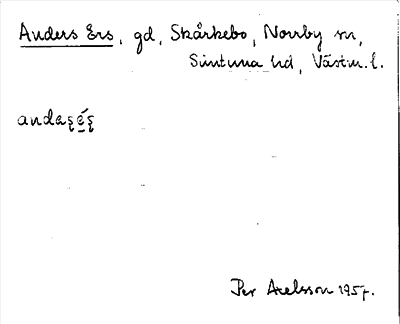 Anders Ers, gd, Skårkebo, Norrby sn,
Simtuna hd, Västm. l.
andaʂé̲ʂ
Per Axelsson 1957.